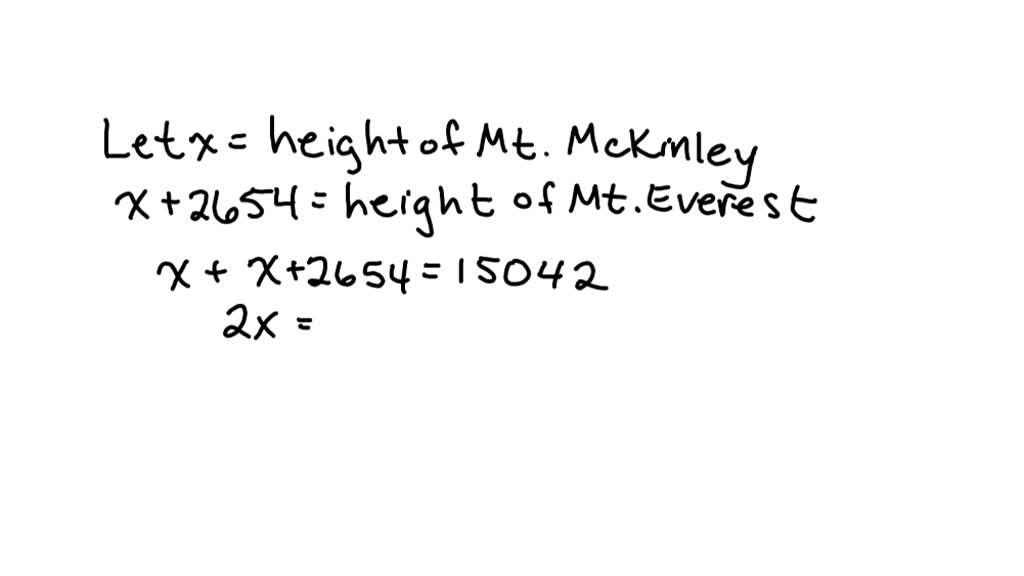 Let x = height of Mt. McKinley
x + 2654 = height of Mt. Everest
x + x + 2654 = 15042
2x =